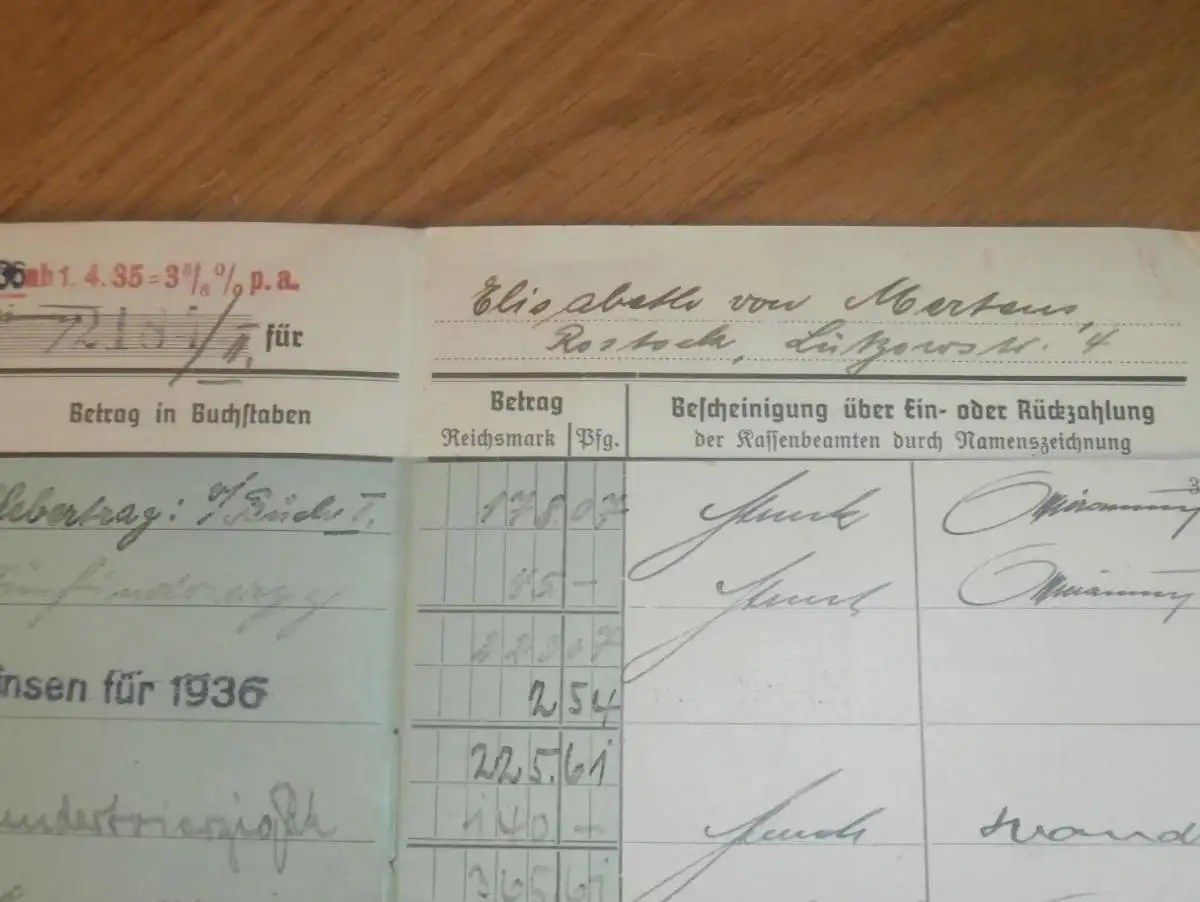 36 ab 1. 4. 35 = 3⅜% p. a.
/II. für
Elisabeth von Mertens,
Rostock, Lützowstr. 4
Betrag in Buchstaben
Betrag
Reichsmark Pfg.
Bescheinigung über Ein- oder Rückzahlung
der Kassenbeamten durch Namenszeichnung
Uebertrag: I. 178.07
45 –
223.07
insen für 1936 2 54
225.61
undertvierzig 140 –
365.61